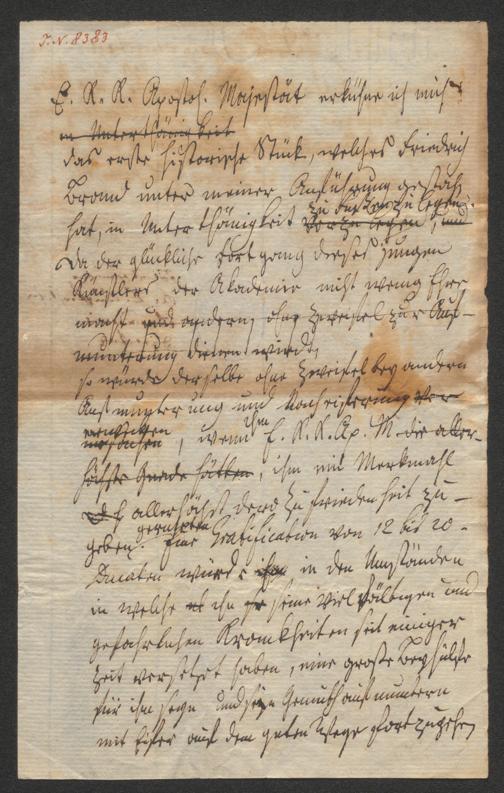 I.N. 8383
E. K. K. Apostol. Majestät erkühne ich mich
in Unterthänigkeit
das erste historische Stück, welches Friedrich
Brand unter meiner Anführung gemacht
hat, in Unterthänigkeit zu legen,
vorzulegen, und
Da der glückliche Fortgang dieses jungen
Künstlers der Akademie nicht wenig Ehre
macht und andern, ohne Zweifel zur Auf-
munterung dienen wird,
so würde derselbe ohne Zweifel bey andern
Aufmunterung und Nacheiferung
erwecken
verursachen, wenn ihm E. K. K. Ap. M. die aller-
höchste Gnade hätten, ihm ein Merkmahl
allerhöchst dero Zufriedenheit zu
geruheten
geben. Eine Gratification von 12 bis 20
Ducaten würde ihm in den Umständen
in welche ihn seine vielfältigen und
gefährlichen Krankheiten seit einiger
Zeit versetzet haben, eine große Beyhülfe
für ihn seyn und sein Gemüth aufmuntern
mit Eifer auf dem guten Wege fortzugehen